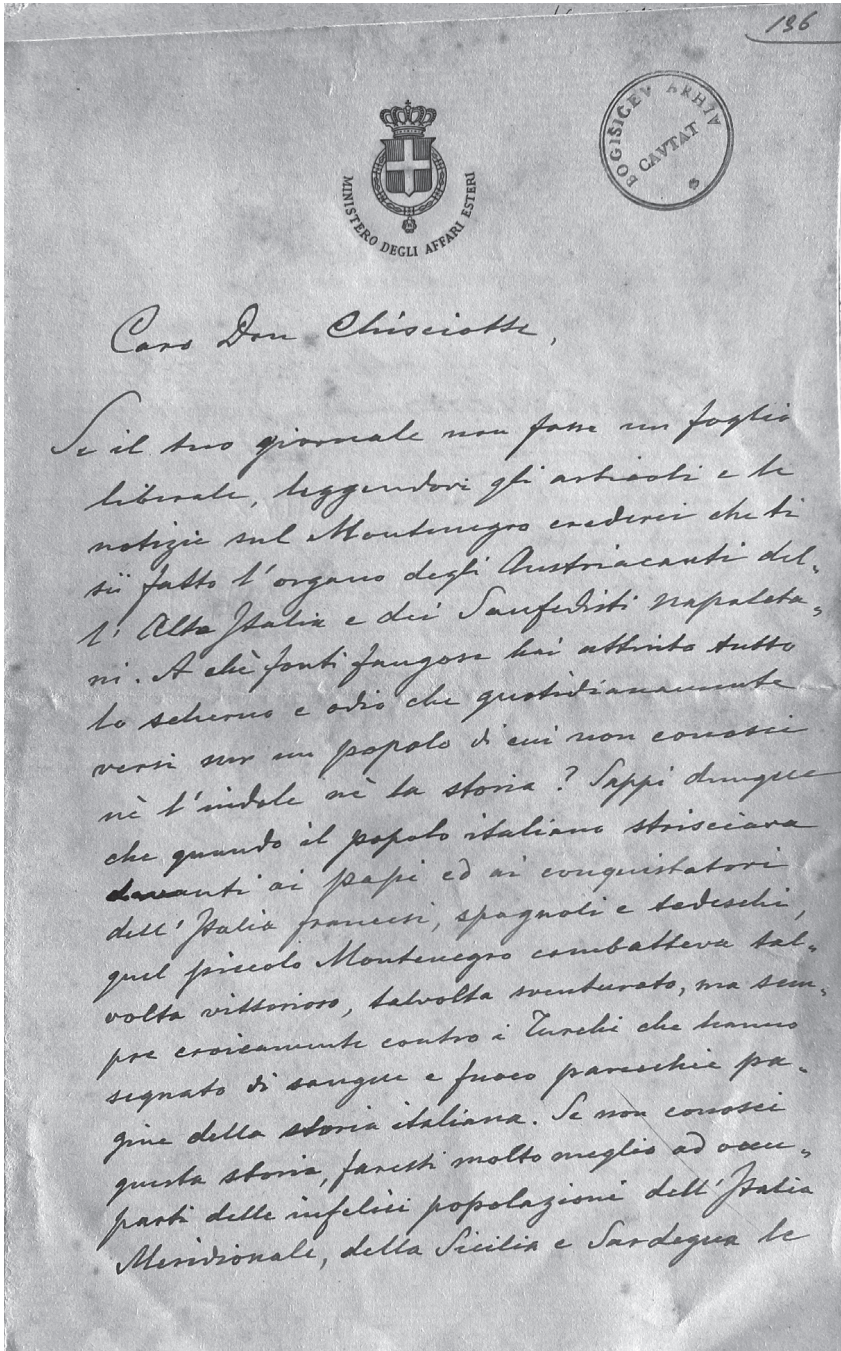 196
BOGIŠIĆEV ARHIV
CAVTAT
MINISTERO DEGLI AFFARI ESTERI
Caro Don Chisciotte,
Se il tuo giornale non fosse un foglio
liberale, leggendovi gli articoli e le
notizie sul Montenegro crederei che ti
sii fatto l'organo degli Austriacanti del-
l'Alta Italia e dei Sanfedisti napoleta-
ni. A che fonti fangose hai attinto tutto
lo scherno e odio che quotidianamente
versi su un popolo di cui non conosci
nè l'indole nè la storia? Sappi dunque
che quando il popolo italiano strisciava
davanti ai papi ed ai conquistatori
dell'Italia francesi, spagnoli e tedeschi,
quel piccolo Montenegro combatteva tal-
volta vittorioso, talvolta sventurato, ma sem-
pre eroicamente contro i Turchi che hanno
segnato di sangue e fuoco parecchie pa-
gine della storia italiana. Se non conosci
questa storia, faresti molto meglio ad occu-
parti delle infelici popolazioni dell'Italia
Meridionale, della Sicilia e Sardegna le